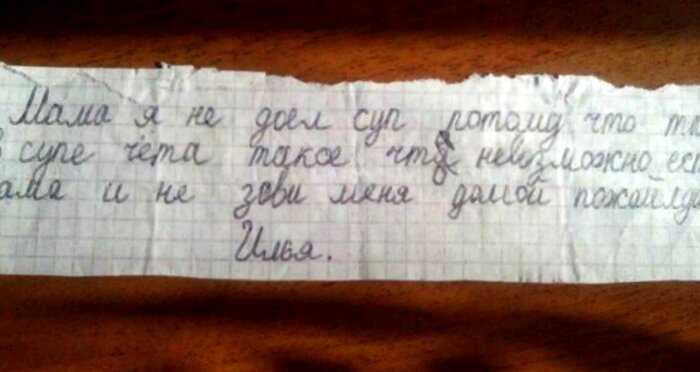 Мама я не доел суп потому что т
в супе чета такое что невозможно
ама и не зови меня домой пожайлуа
Илья.